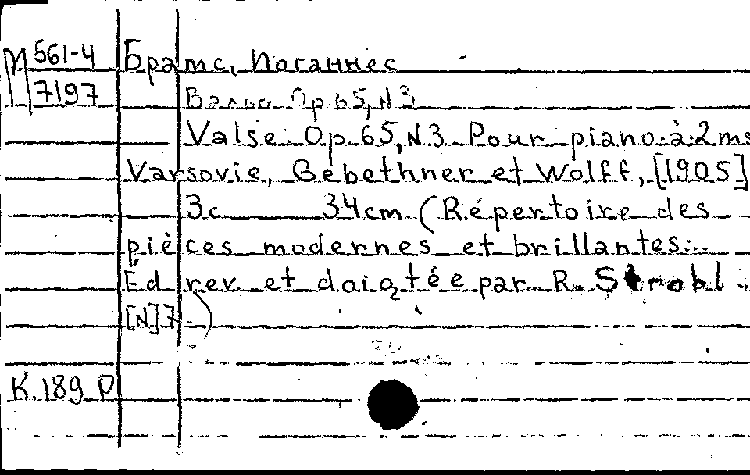 М 561-4 Брамс, Иоганнес
7197 Вальс Op 65, N3
Valse. Op. 65, N3. Pour piano à 2 ms
Varsovie, Gebethner et Wolff, [1905]
3 c 34 cm (Répertoire des
pièces modernes et brillantes...
Ed rev et doigtée par R. Strobl.
[N]7.)
К. 189 Р